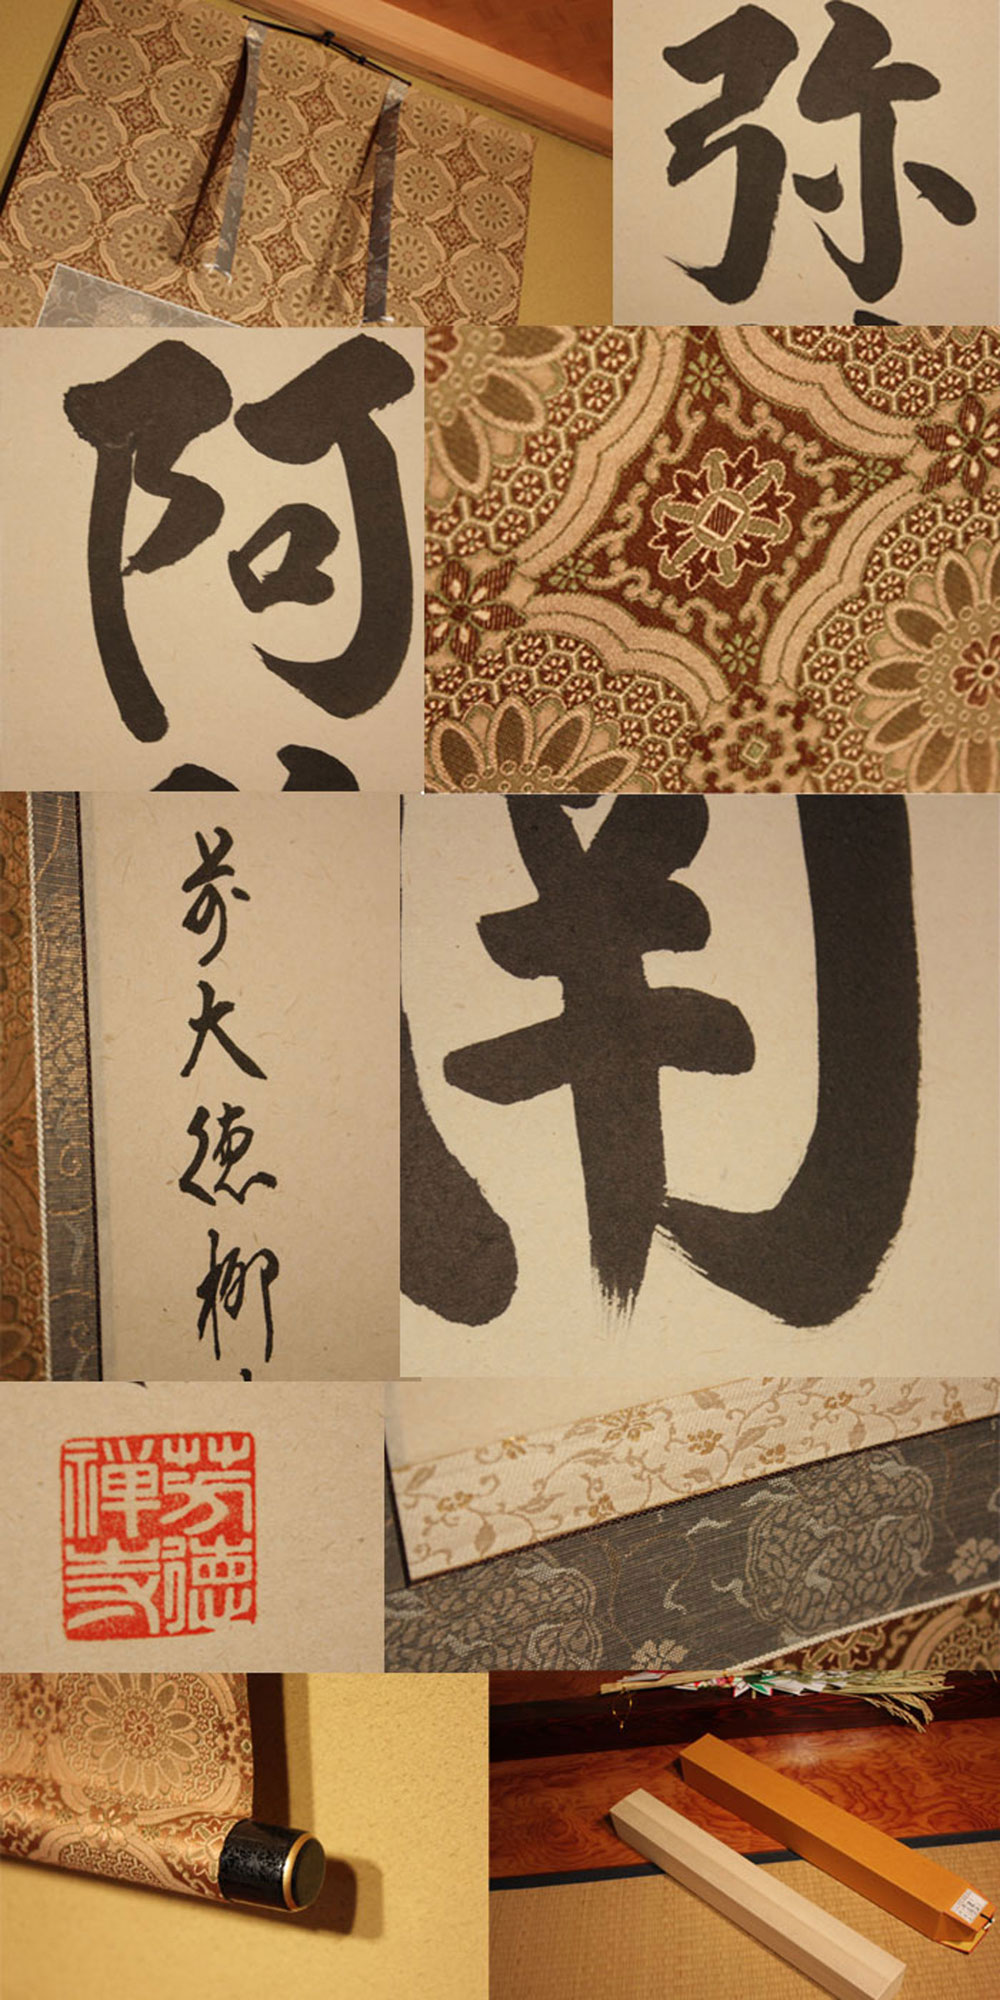 弥
阿
前大徳柳
南
芳徳
禅寺